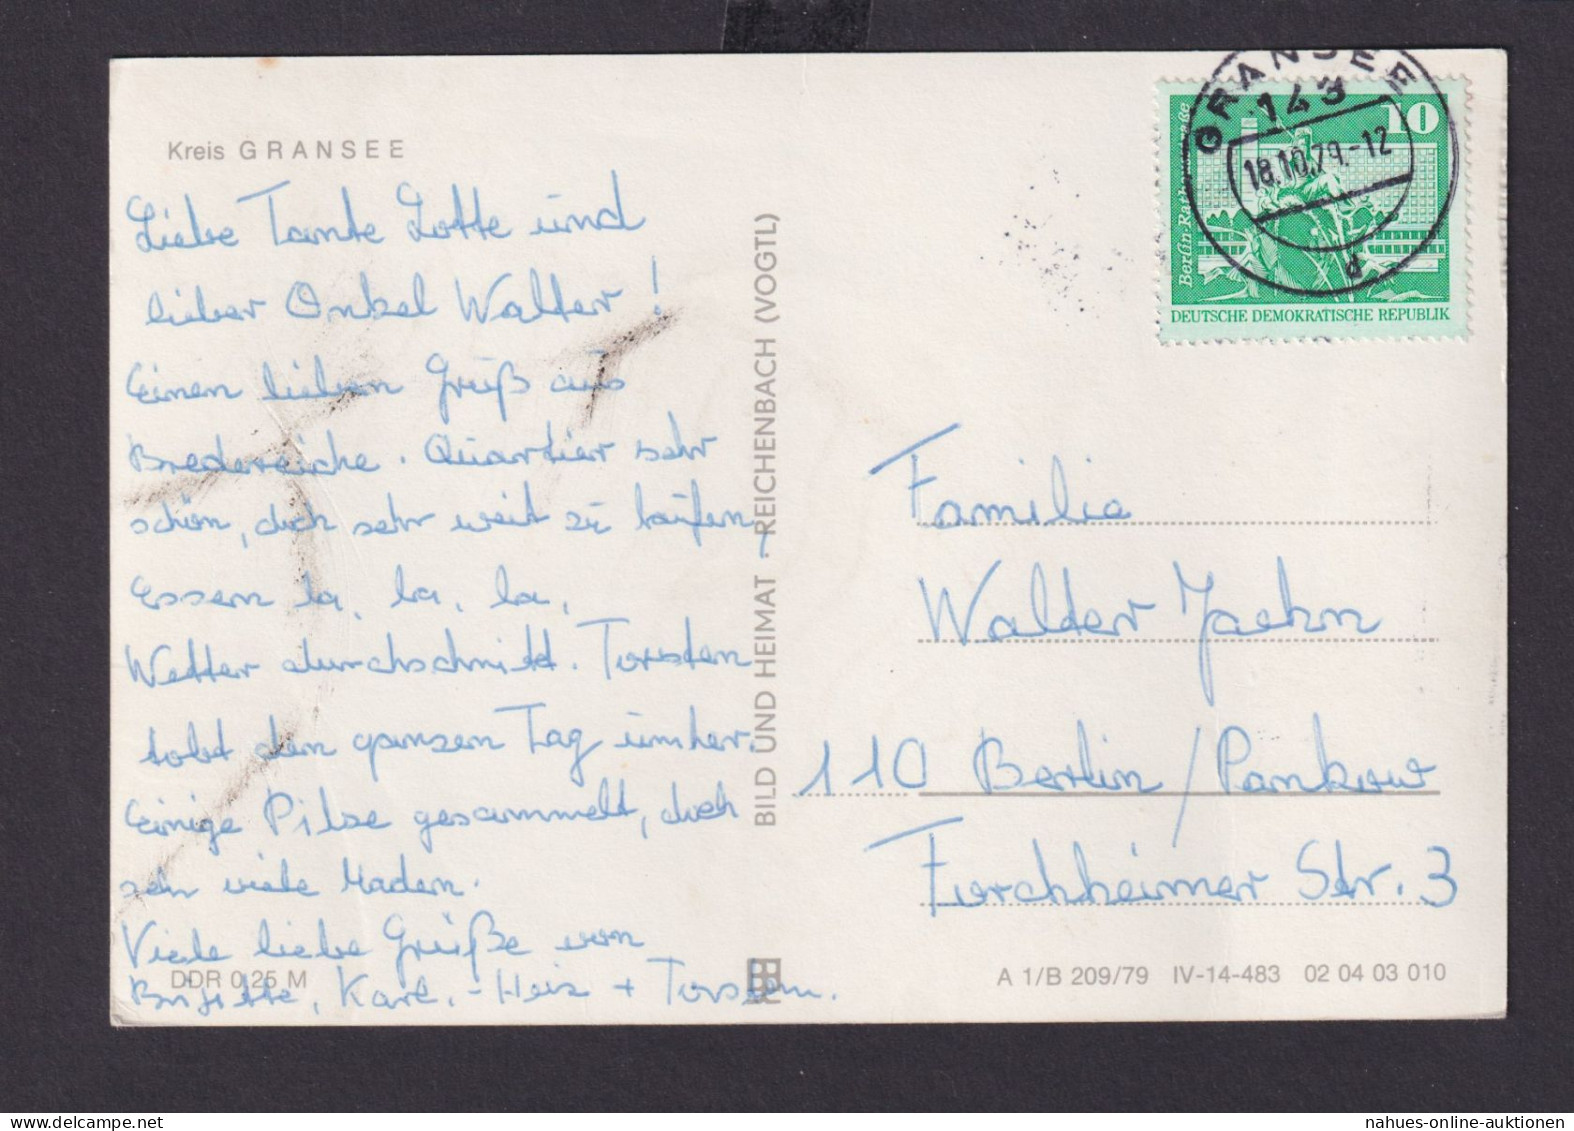 Kreis GRANSEE
Liebe Tante Lotte und
lieber Onkel Walter!
Einen lieben Gruß aus
Bredereiche. Quartier sehr
schön, doch sehr weit zu laufen,
Essen la, la, la,
Wetter durchschnitt. Torsten
tobt den ganzen Tag umher.
Einige Pilze gesammelt, doch
sehr viele Maden.
Viele liebe Grüße von
Brigitte, Karl.-Heinz + Torsten.
DDR 0,25 M
BILD UND HEIMAT · REICHENBACH (VOGTL)
GRANSEE
143
18.10.79.-12
d
10
Berlin-Rathausstraße
DEUTSCHE DEMOKRATISCHE REPUBLIK
Familie
Walter Jaehn
110 Berlin/Pankow
Forchheimer Str. 3
A 1/B 209/79 IV-14-483 02 04 03 010
nahues-online-auktionen